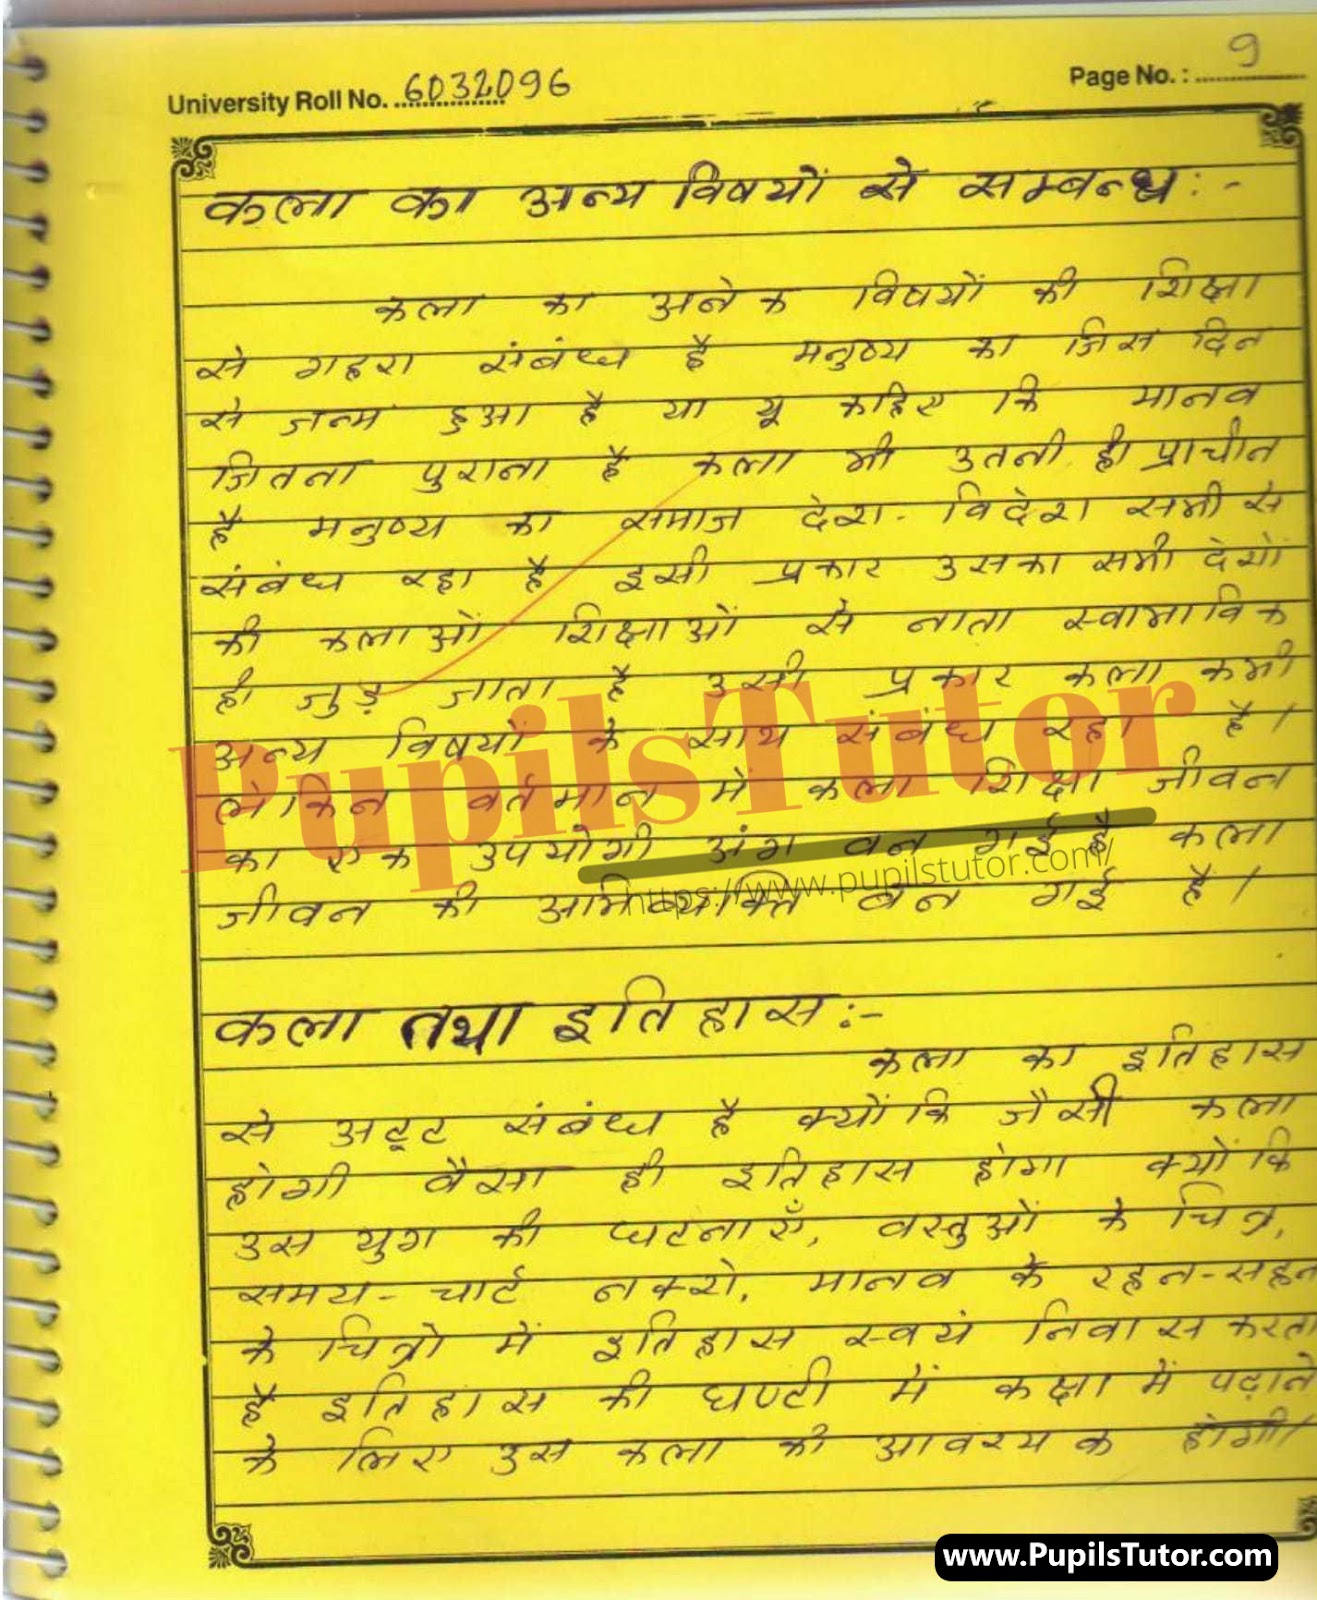 University Roll No. 6032096
Page No. : 9
कला का अन्य विषयों से सम्बन्ध :-
कला का अनेक विषयों की शिक्षा
से गहरा संबंध है मनुष्य का जिस दिन
से जन्म हुआ है या यू कहिए कि मानव
जितना पुराना है कला भी उतनी ही प्राचीन
है मनुष्य का समाज देश-विदेश सभी से
संबंध रहा है इसी प्रकार उसका सभी देशों
की कलाओं शिक्षाओं से नाता स्वाभाविक
ही जुड़ जाता है उसी प्रकार कला कभी
अन्य विषयों के साथ संबंध रहा है।
लेकिन वर्तमान में कला शिक्षा जीवन
का एक उपयोगी अंग बन गई है कला
जीवन की अभिव्यक्ति बन गई है।
PupilsTutor
https://www.pupilstutor.com/
कला तथा इतिहास :-
कला का इतिहास
से अटूट संबंध है क्योंकि जैसी कला
होगी वैसा ही इतिहास होगा क्योंकि
उस युग की घटनाएँ, वस्तुओं के चित्र,
समय-चार्ट नक्शे, मानव के रहन-सहन
के चित्रो में इतिहास स्वयं निवास करता
है इतिहास की घण्टी में कक्षा में पढ़ाते
के लिए उस कला की आवश्यक होगी।
www.PupilsTutor.com